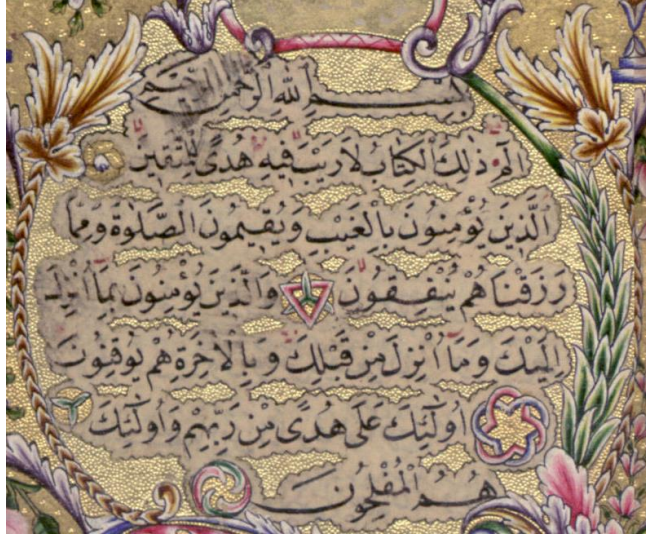 بسم الله الرحمن الرحيم
الٓمٓ ذٰلِكَ الْكِتَابُ لَا رَيْبَ فِيهِ هُدًى لِلْمُتَّقِينَ
الَّذِينَ يُؤْمِنُونَ بِالْغَيْبِ وَيُقِيمُونَ الصَّلٰوةَ وَمِمَّا
رَزَقْنَاهُمْ يُنْفِقُونَ وَالَّذِينَ يُؤْمِنُونَ بِمَٓا اُنْزِلَ
اِلَيْكَ وَمَٓا اُنْزِلَ مِنْ قَبْلِكَ وَبِالْاٰخِرَةِ هُمْ يُوقِنُونَ
اُولٰٓئِكَ عَلٰى هُدًى مِنْ رَبِّهِمْ وَاُولٰٓئِكَ
هُمُ الْمُفْلِحُونَ